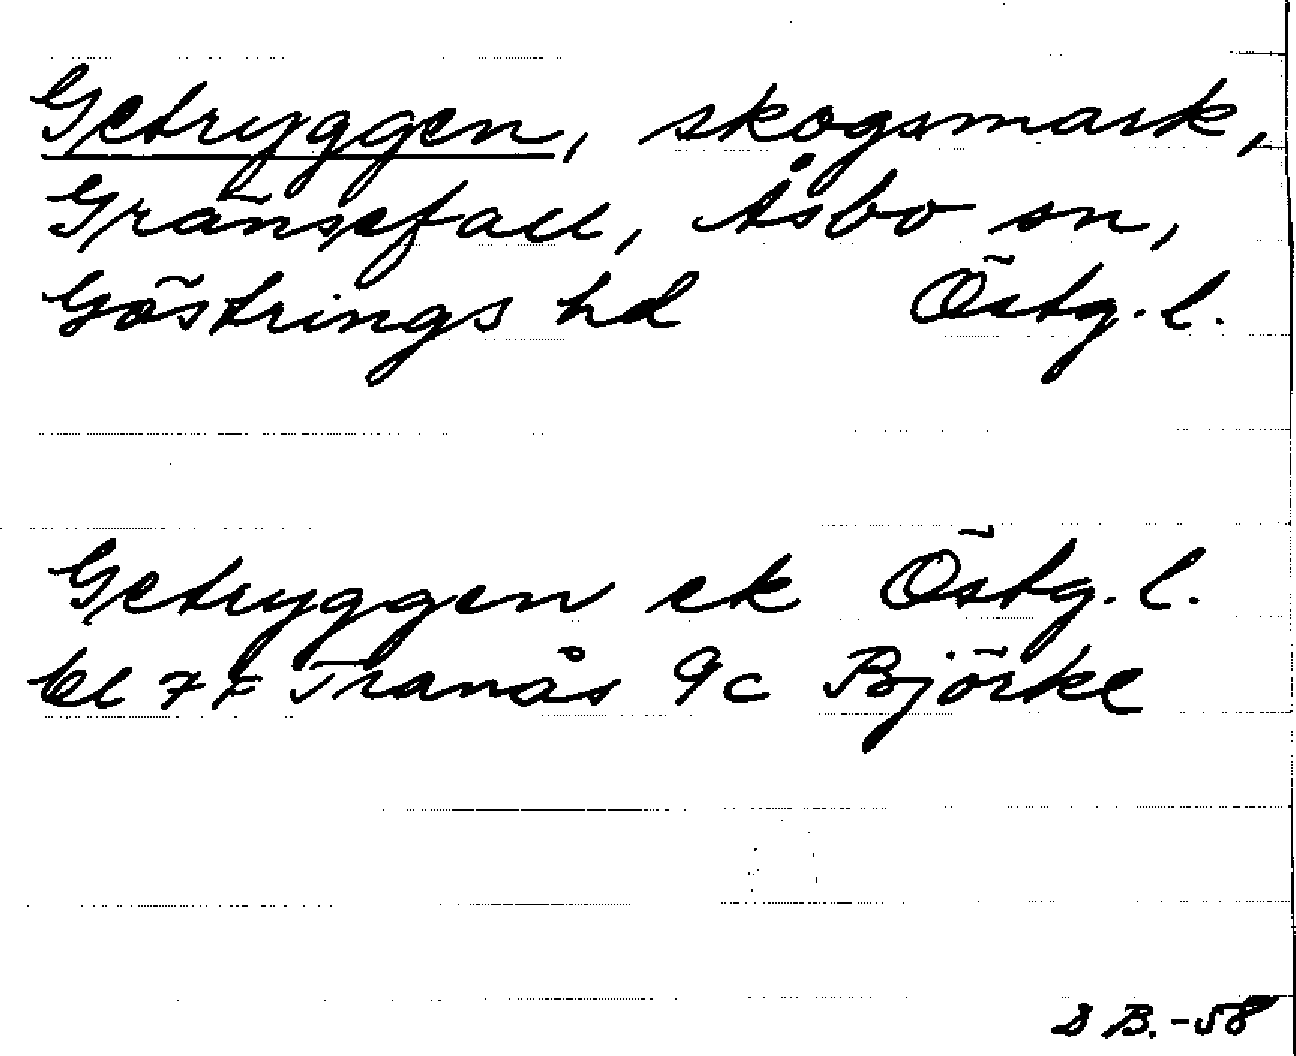 Getryggen, skogsmark,
Gränsefall, Åsbo sn,
Göstrings hd Östg. l.
Getryggen ek Östg. l.
bl 7F Tranås 9c Björke
B.-58